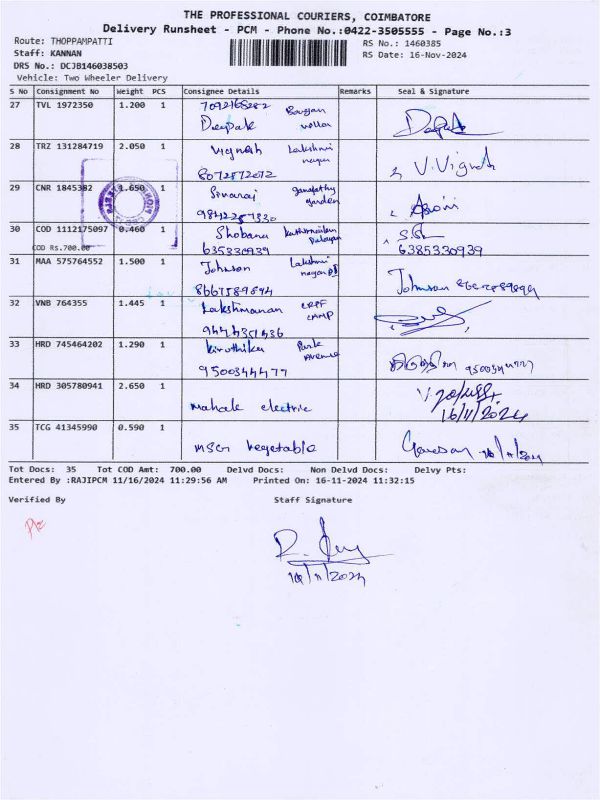 THE PROFESSIONAL COURIERS, COIMBATORE
Delivery Runsheet - PCM - Phone No.:0422-3505555 - Page No.:3
Route: THOPPAMPATTI
RS No.: 1460385
Staff: KANNAN
RS Date: 16-Nov-2024
DRS No.: DCJB146038503
Vehicle: Two Wheeler Delivery
S No Consignment No Weight PCS Consignee Details Remarks Seal & Signature
27 TVL 1972350 1.200 1
Deepak
28 TRZ 131284719 2.050 1 Vignesh Lakshmi nagar V. Vignesh
8072872072
29 CNR 1845382 1.650 1 Sivaraj ganapathy garden
30 COD 1112175097 0.460 1 Shobana
COD Rs.700.00 6385330939 6385330939
31 MAA 575764552 1.500 1 Johnson Lakshmi Johnson
32 VNB 764355 1.445 1 Lakshmanan CRPF CAMP
9444351436
33 HRD 745464202 1.290 1 kiruthika Park Avenue
9500344477
34 HRD 305780941 2.650 1
Mahale electric 16/11/2024
35 TCG 41345990 0.590 1
MSGR Vegetable Ganesan 16/11/2024
Tot Docs: 35 Tot COD Amt: 700.00 Delvd Docs: Non Delvd Docs: Delvy Pts:
Entered By :RAJIPCM 11/16/2024 11:29:56 AM Printed On: 16-11-2024 11:32:15
Verified By Staff Signature
16/11/2024